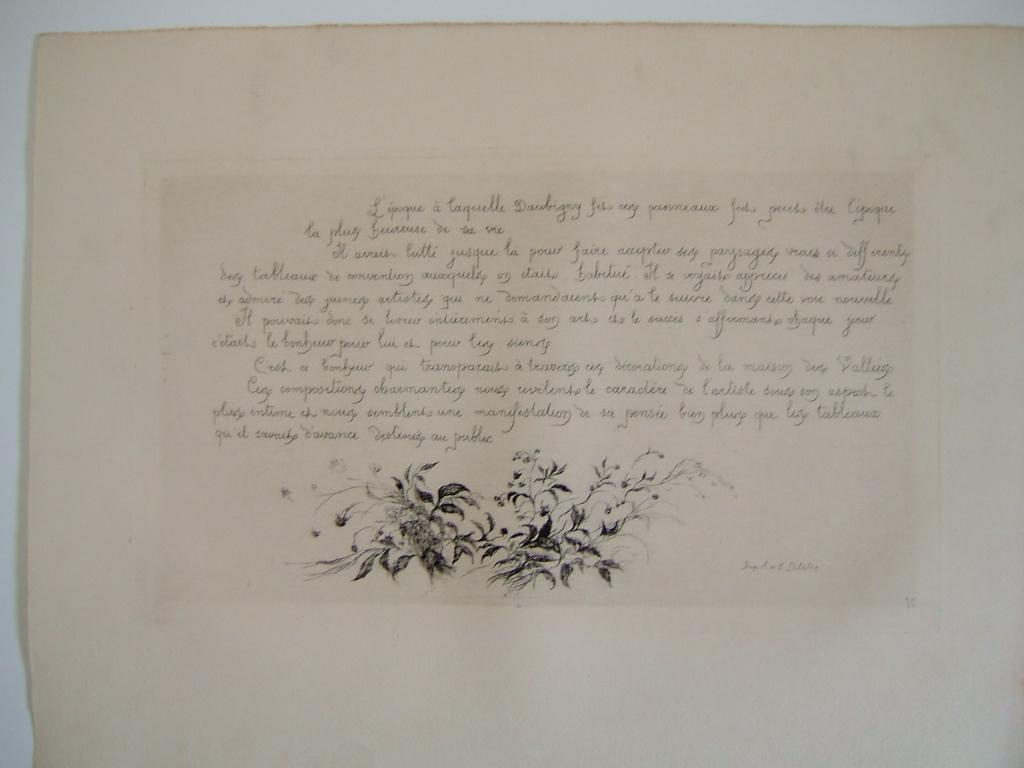 L'époque à laquelle Daubigny fit ces panneaux fut peut être l'époque
la plus heureuse de sa vie
Il avait lutté jusque là pour faire accepter ses paysages vrais si differents
des tableaux de convention auxquels on était habitué. Il se voyait apprecié des amateurs
et admiré des jeunes artistes qui ne demandaient qu'a le suivre dans cette voie nouvelle
Il pouvait donc se livrer entièrement à son art et le succès s'affirmant chaque jour
c'était le bonheur pour lui et pour les siens
C'est ce bonheur qui transparait à travers ces décorations de la maison des Vallées
Ces compositions charmantes nous revèlent le caractère de l'artiste sous son aspect le
plus intime et nous semblent une manifestation de sa pensée bien plus que les tableaux
qu'il savait d'avance destinés au public
Imp. A et E Delâtre